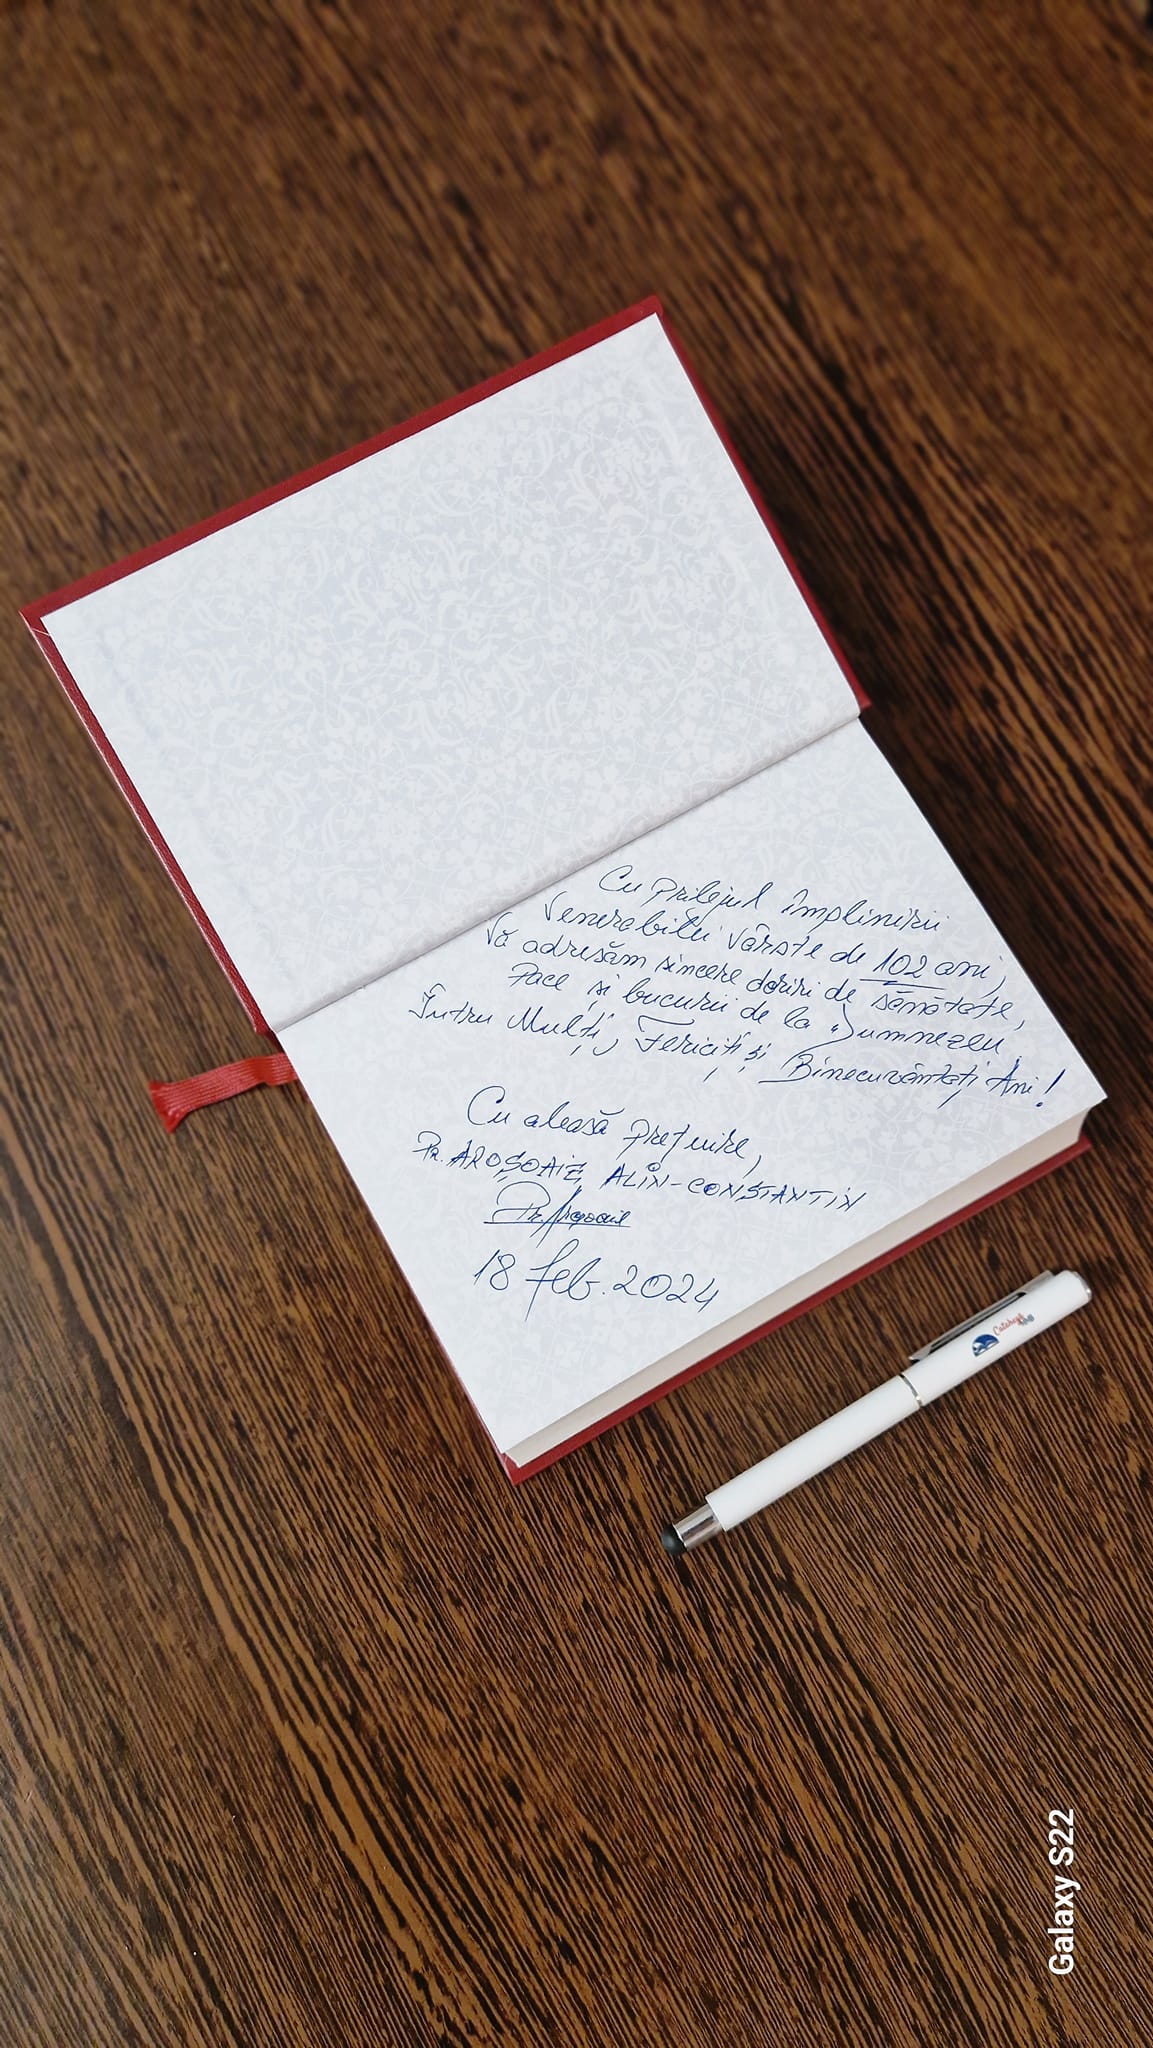 Cu prilejul împlinirii
Venerabilei vârste de 102 ani,
Vă adresăm sincere doriri de sănătate,
Pace și bucurii de la Dumnezeu.
Întru Mulți, Fericiți și Binecuvântați Ani!
Cu aleasă prețuire,
Pr. AROȘOAIE, ALIN-CONSTANTIN
Pr. Aroșoaie
18 feb. 2024
Galaxy S22